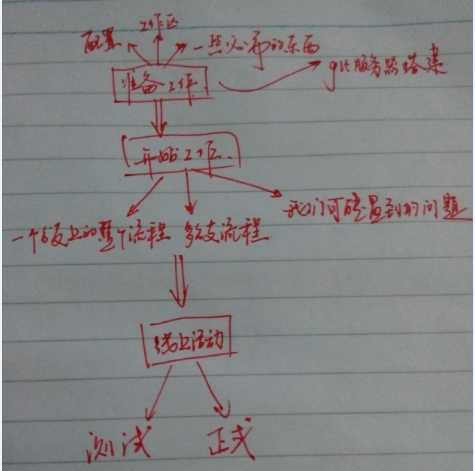 工作区
配置
一些必需的东西
git服务器搭建
准备工作
开始工作
我们可能遇到的问题
一个分支上的整个流程
多分支流程
线上活动
测试
正式